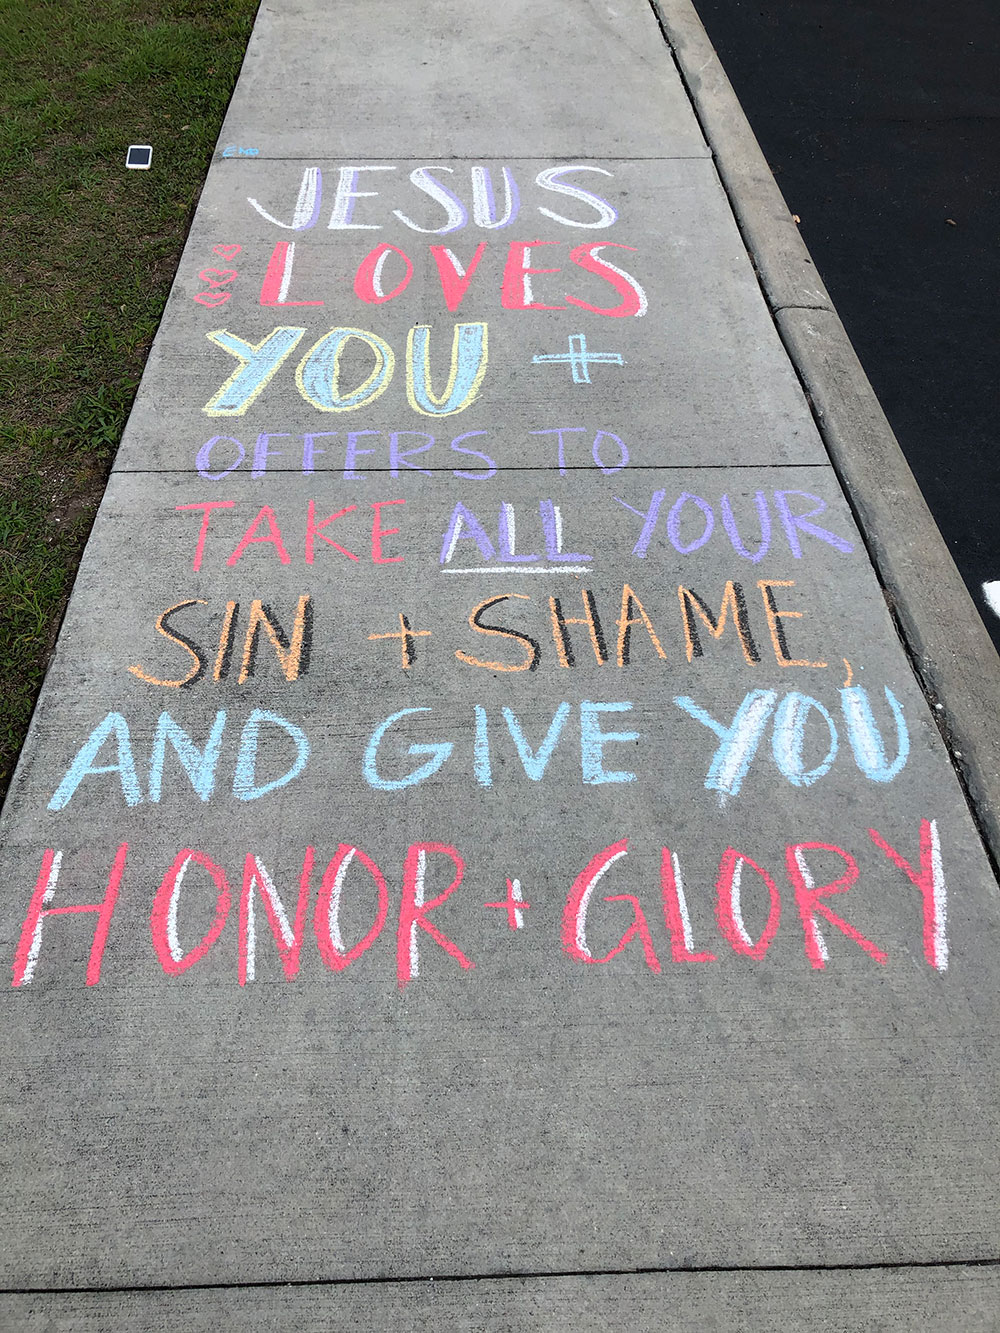 JESUS
LOVES
YOU +
OFFERS TO
TAKE ALL YOUR
SIN + SHAME,
AND GIVE YOU
HONOR + GLORY